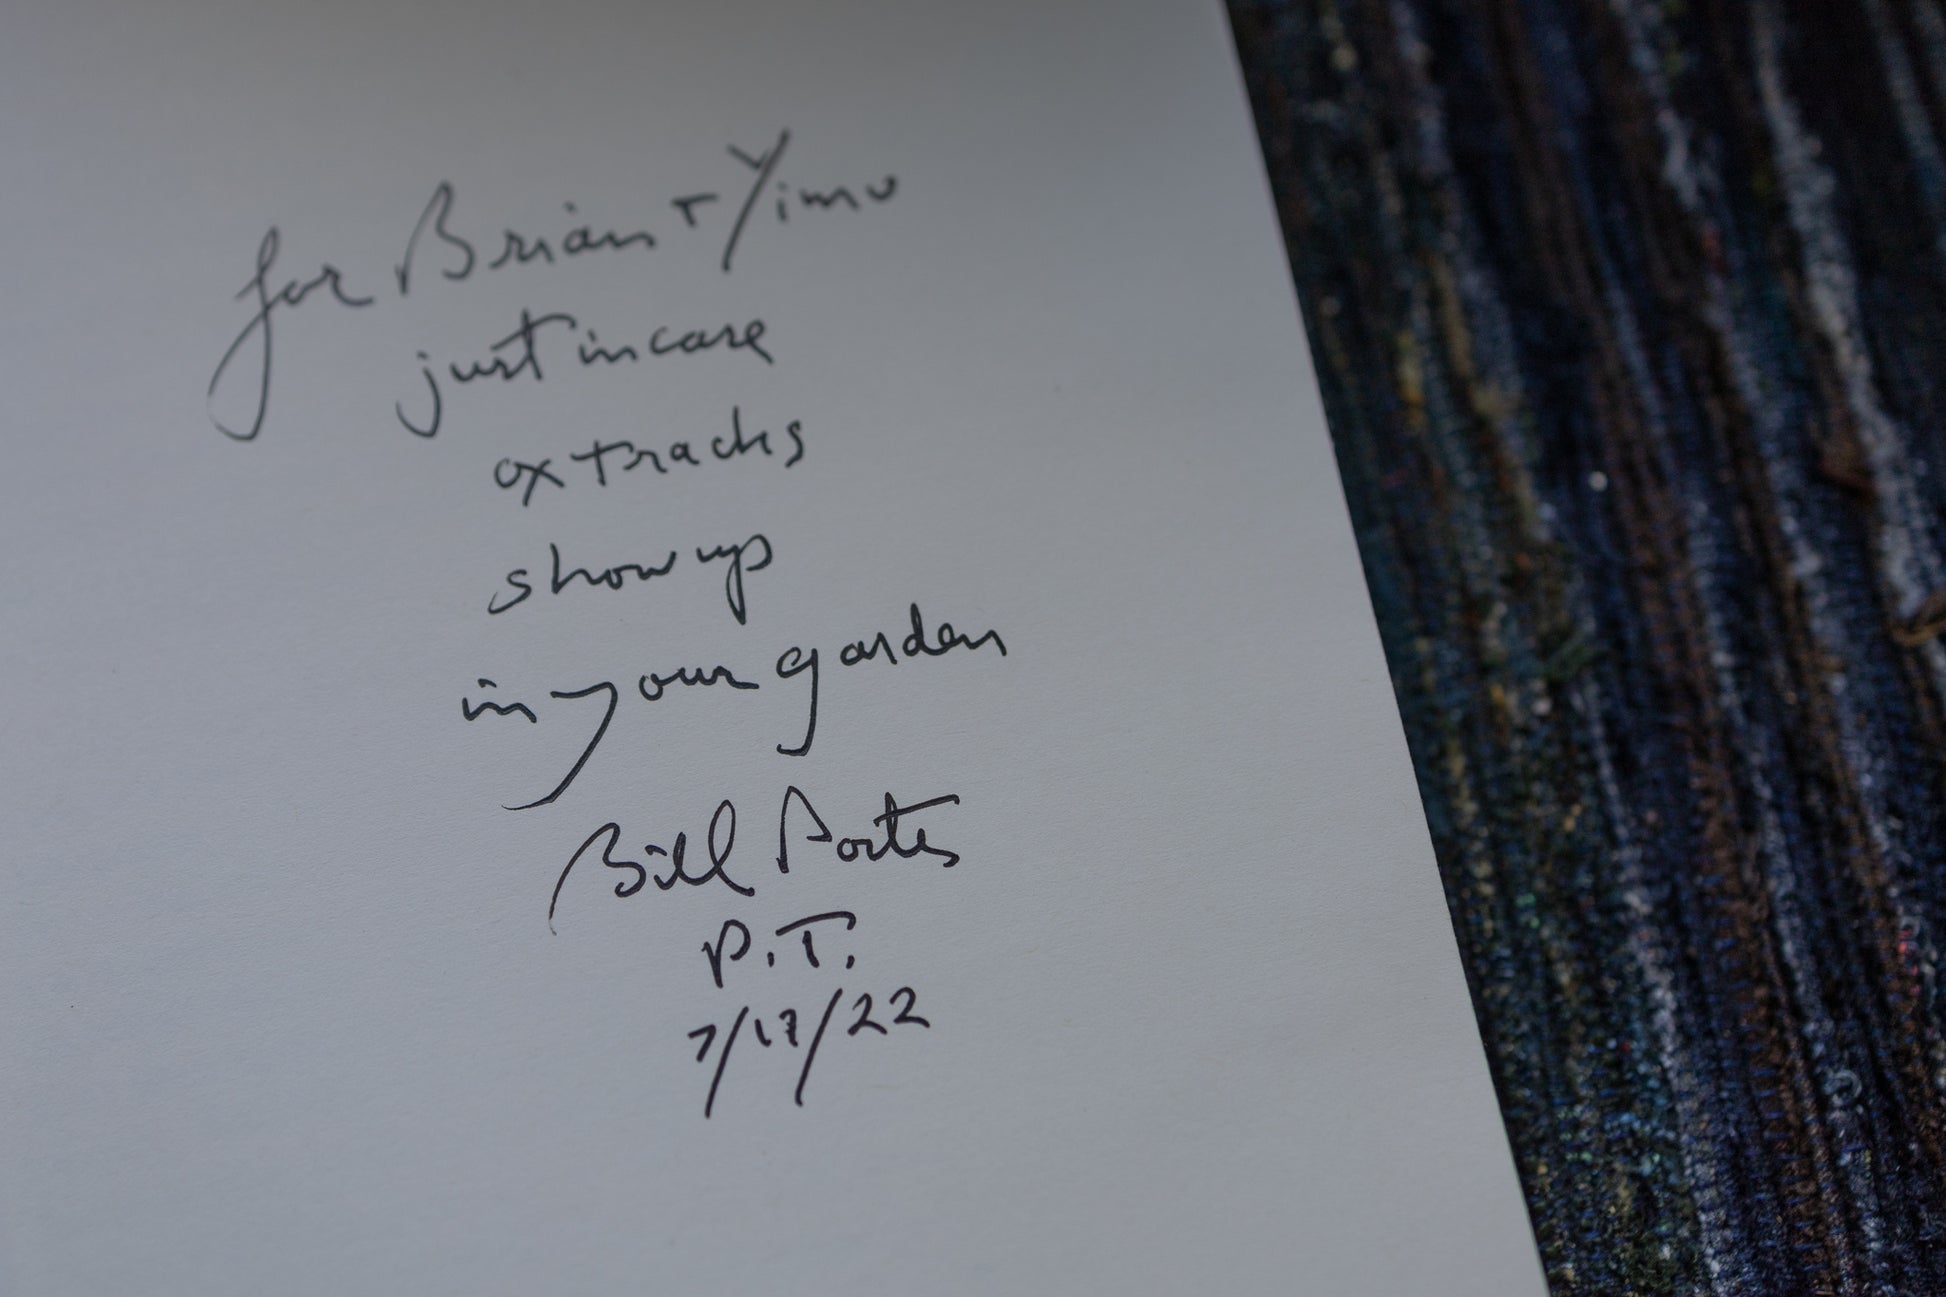 for Brian + Yimu
just in case
ox tracks
show up
in your garden
Bill Porter
P.T.
7/17/22